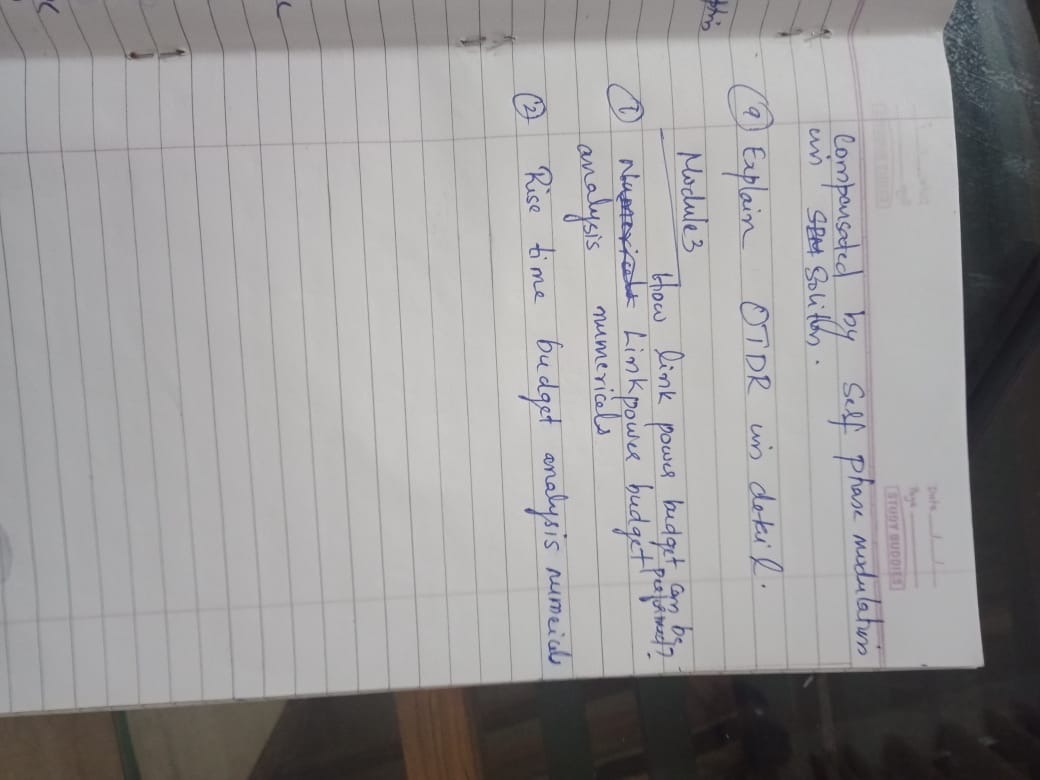 Date
Page
STUDY BUDDIES
Compensated by Self phase modulation
in SPM Soliton.
(9) Explain OTDR in detail.
Module 3
How link power budget can be
performed?
(1) Numericals Link power budget
analysis numericals
(2) Rise time budget analysis numeicals